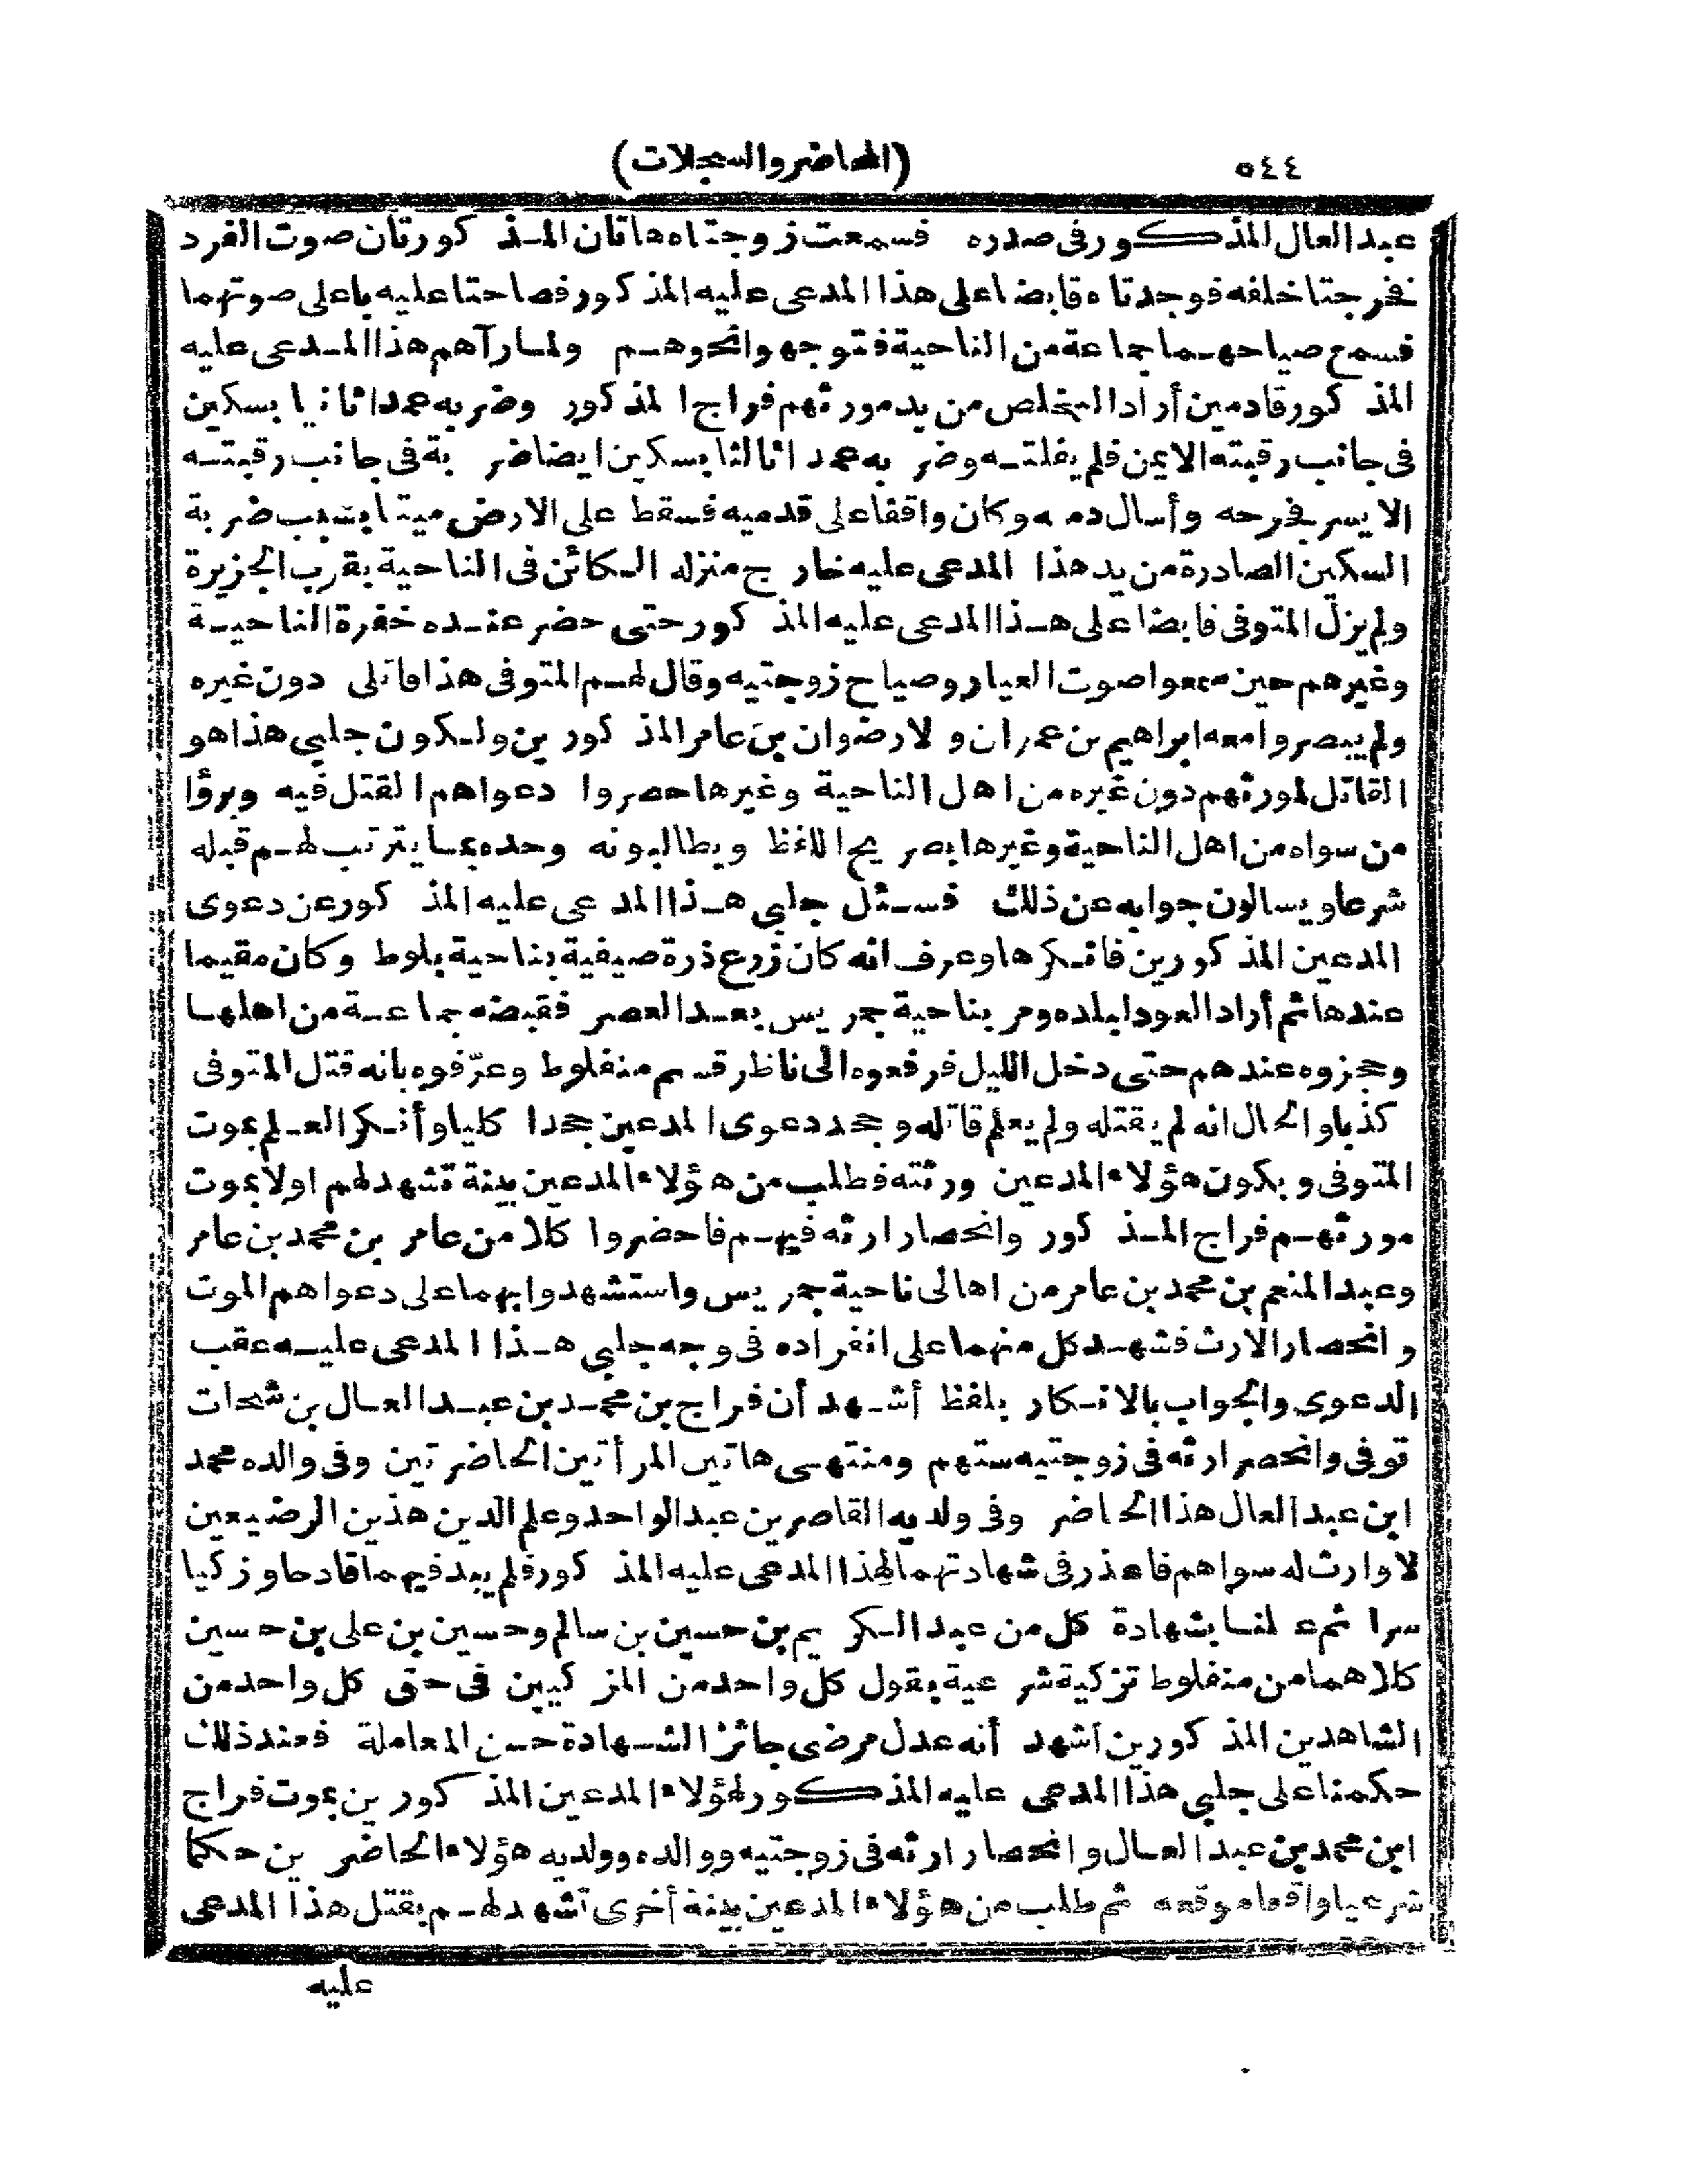 ٥٤٤
(المحاضر والسجلات)
عبد العال المذكور فى صدره فسمعت زوجتاه هاتان المذكورتان صوت الفرد
فخرجتا خلفه فوجدتاه قابضا على هذا المدعى عليه المذكور فصاحتا عليه باعلى صوتهما
فسمع صياحهما جماعة من الناحية فتوجهوا نحوهم ولما رآهم هذا المدعى عليه
المذكور قادمين أراد التخلص من يد مورثهم فراج المذكور وضربه عمدا ثانيا بسكين
فى جانب رقبته الايمن فلم يفلته وضربه عمدا ثالثا بسكين ايضا ضربة فى جانب رقبته
الايسر فجرحه وأسال دمه وكان واقفا على قدميه فسقط على الارض ميتا بسبب ضربة
السكين الصادرة من يد هذا المدعى عليه خارج منزله الكائن فى الناحية بقرب الجزيرة
ولم يزل المتوفى قابضا على هذا المدعى عليه المذكور حتى حضر عنده خفرة الناحية
وغيرهم حين سمعوا صوت العيار وصياح زوجتيه وقال لهم المتوفى هذا قاتلى دون غيره
ولم يبصروا معه ابراهيم بن عمران ولا رضوان بن عامر المذكورين ولكون جلبى هذا هو
القاتل لمورثهم دون غيره من اهل الناحية وغيرها حصروا دعواهم القتل فيه وبرؤا
من سواه من اهل الناحية وغيرها بصريح اللفظ ويطالبونه وحده بما يترتب لهم قبله
شرعا ويسالون جوابه عن ذلك فسئل جلبى هذا المدعى عليه المذكور عن دعوى
المدعين المذكورين فانكرها وعرف انه كان زرع ذرة صيفية بناحية بلوط وكان مقيما
عندها ثم أراد العود لبلده ومر بناحية جريس بعد العصر فقبضه جماعة من اهلها
وحجزوه عندهم حتى دخل الليل فرفعوه الى ناظر قسم منفلوط وعرّفوه بانه قتل المتوفى
كذبا والحال انه لم يقتله ولم يعلم قاتله وجحد دعوى المدعين جحدا كليا وأنكر العلم بموت
المتوفى وبكون هؤلاء المدعين ورثته فطلب من هؤلاء المدعين بينة تشهد لهم اولا بموت
مورثهم فراج المذكور وانحصار ارثه فيهم فاحضروا كلا من عامر بن محمد بن عامر
وعبد المنعم بن محمد بن عامر من اهالى ناحية جريس واستشهدوا بهما على دعواهم الموت
وانحصار الارث فشهد كل منهما على انفراده فى وجه جلبى هذا المدعى عليه عقب
الدعوى والجواب بالانكار بلفظ أشهد أن فراج بن محمد بن عبد العال بن شحات
توفى وانحصر ارثه فى زوجتيه ستهم ومنتهى هاتين المرأتين الحاضرتين وفى والده محمد
ابن عبد العال هذا الحاضر وفى ولديه القاصرين عبد الواحد وعلم الدين هذين الرضيعين
لا وارث له سواهم فاعذر فى شهادتهما لهذا المدعى عليه المذكور فلم يبد فيهما قادحا وزكيا
سرا ثم علنا بشهادة كل من عبد الكريم بن حسين بن سالم وحسين بن على بن حسين
كلاهما من منفلوط تزكية شرعية بقول كل واحد من المزكيين فى حق كل واحد من
الشاهدين المذكورين اشهد أنه عدل مرضى جائز الشهادة حسن المعاملة فعند ذلك
حكمنا على جلبى هذا المدعى عليه المذكور لهؤلاء المدعين المذكورين بموت فراج
ابن محمد بن عبد العال وانحصار ارثه فى زوجتيه ووالده وولديه هؤلاء الحاضرين حكما
شرعيا واقعا موقعه ثم طلب من هؤلاء المدعين بينة أخرى تشهد لهم بقتل هذا المدعى
عليه